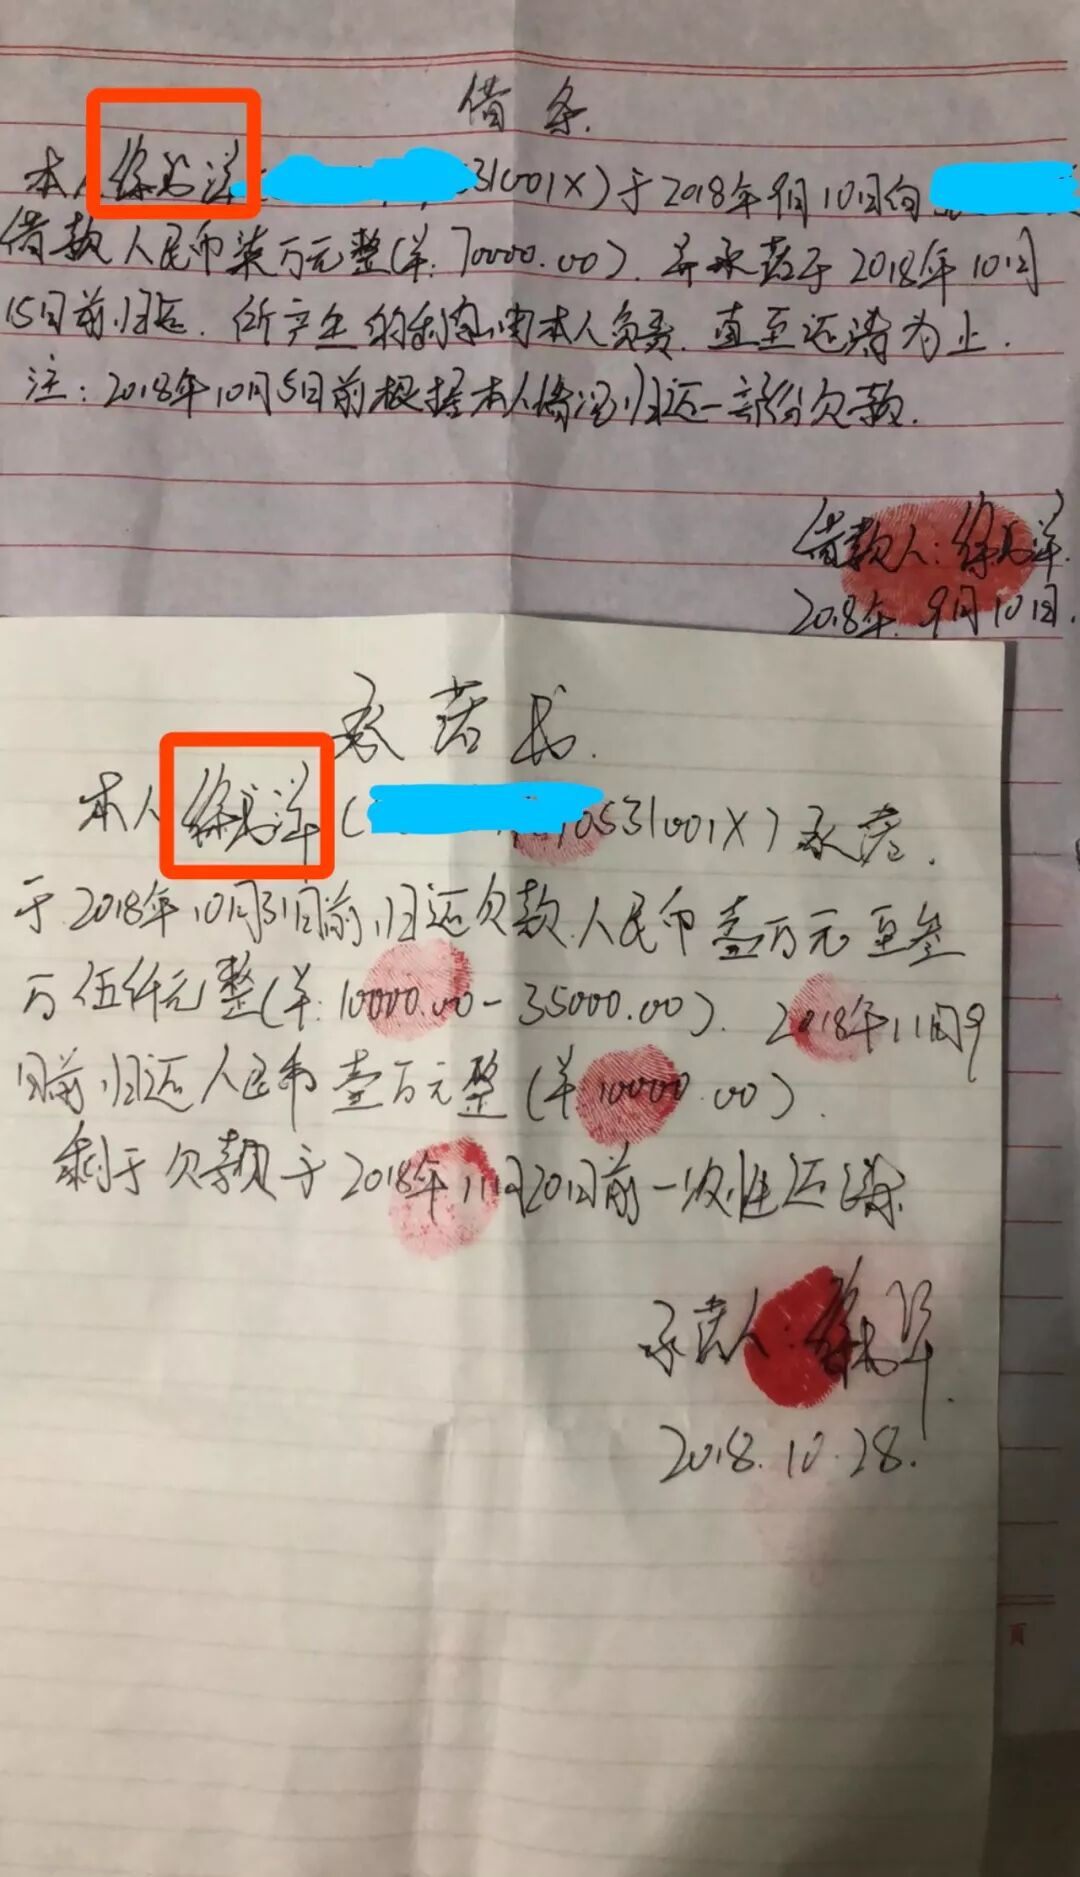 借条.
本人徐 洋(31001X)于2018年9月10日向
借款人民币柒万元整(羊:70000.00).并承诺于2018年10月
15日前归还.所产生的利息由本人负责.直至还清为止.
注:2018年10月5日前根据本人情况归还一部份欠款.
借款人:徐 洋.
2018年.9月10日.
承诺书.
本人徐 洋(10531001X)承诺.
于2018年10月31日前归还欠款人民币壹万元至叁
万伍仟元整(羊:10000.00-35000.00).2018年11月9
日前归还人民币壹万元整(羊10000.00).
剩于欠款于2018年11月20日前一次性还清
承诺人:徐 洋.
2018.10.28.
頁